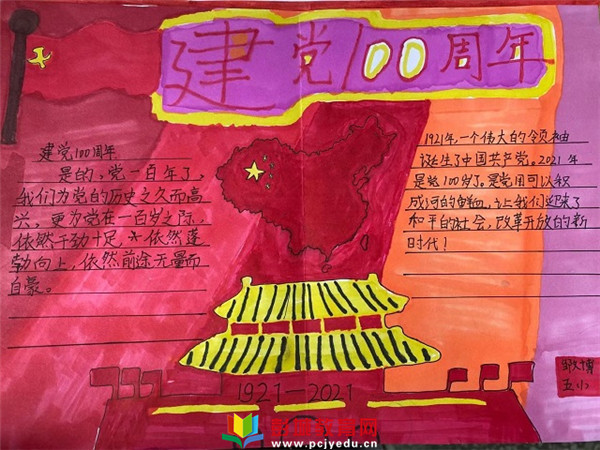 建党100周年
建党100周年
是的，党一百年了，
我们为党的历史之久而高
兴，更为党在一百岁之际，
依然干劲十足，依然蓬
勃向上，依然前途无量而
自豪。
1921年，一个伟大的领袖
诞生了中国共产党。2021年
是 100岁了。是党用可以积
成河的 我们迎来了
和平的社会，改革开放的新
时代！
1921—2021
博
五小
www.pcjyedu.cn